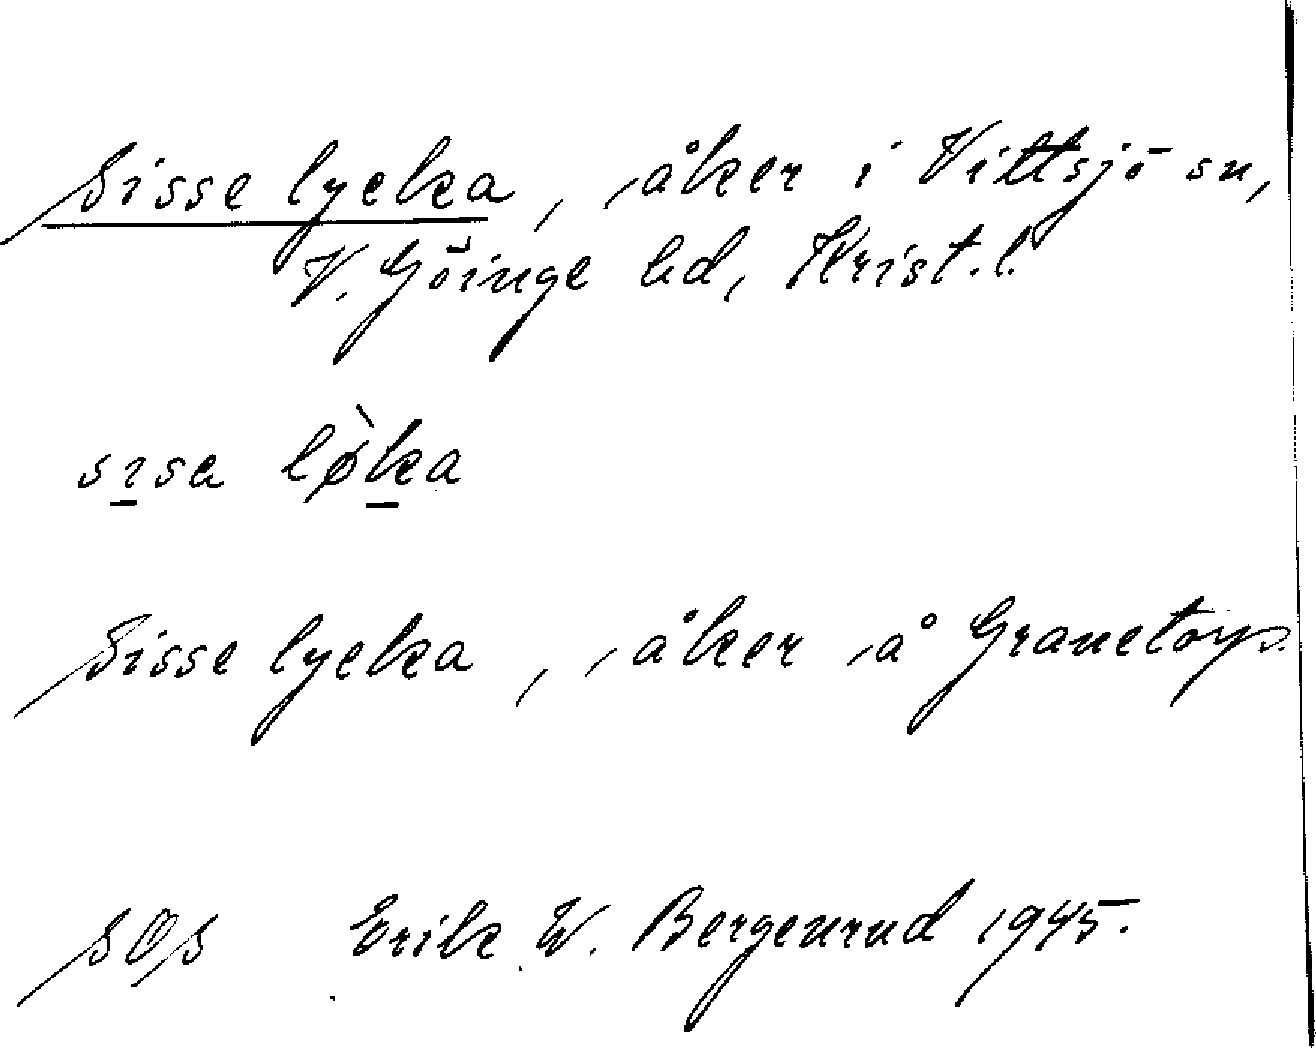 Sisse lycka, åker i Vittsjö sn,
V. Göinge hd, Krist. l.
sısa lø̀ka
Sisse lycka, åker å Granetorp.
SOS Erik W. Bergenrud 1945.